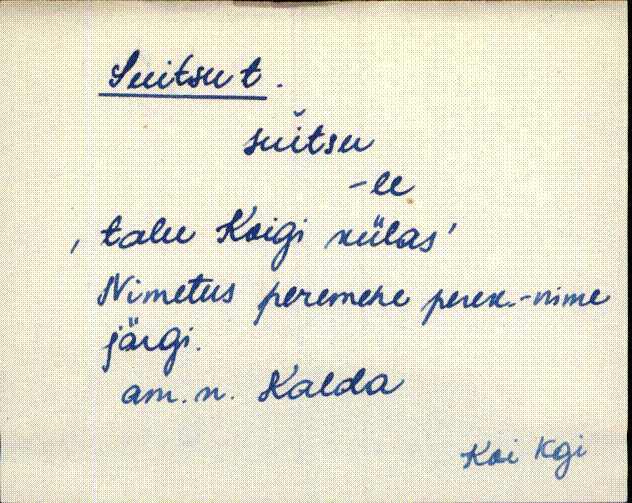 Suitsu t.
suĭtsu
-le
, talu Koigi külas'
Nimetus peremehe perek.-nime
järgi.
am. n. Kalda
Koi Kgi